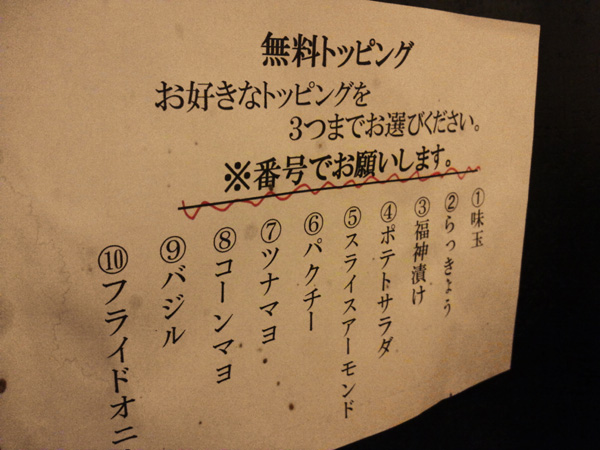 無料トッピング
お好きなトッピングを
3つまでお選びください。
※番号でお願いします。
①味玉
②らっきょう
③福神漬け
④ポテトサラダ
⑤スライスアーモンド
⑥パクチー
⑦ツナマヨ
⑧コーンマヨ
⑨バジル
⑩フライドオニ